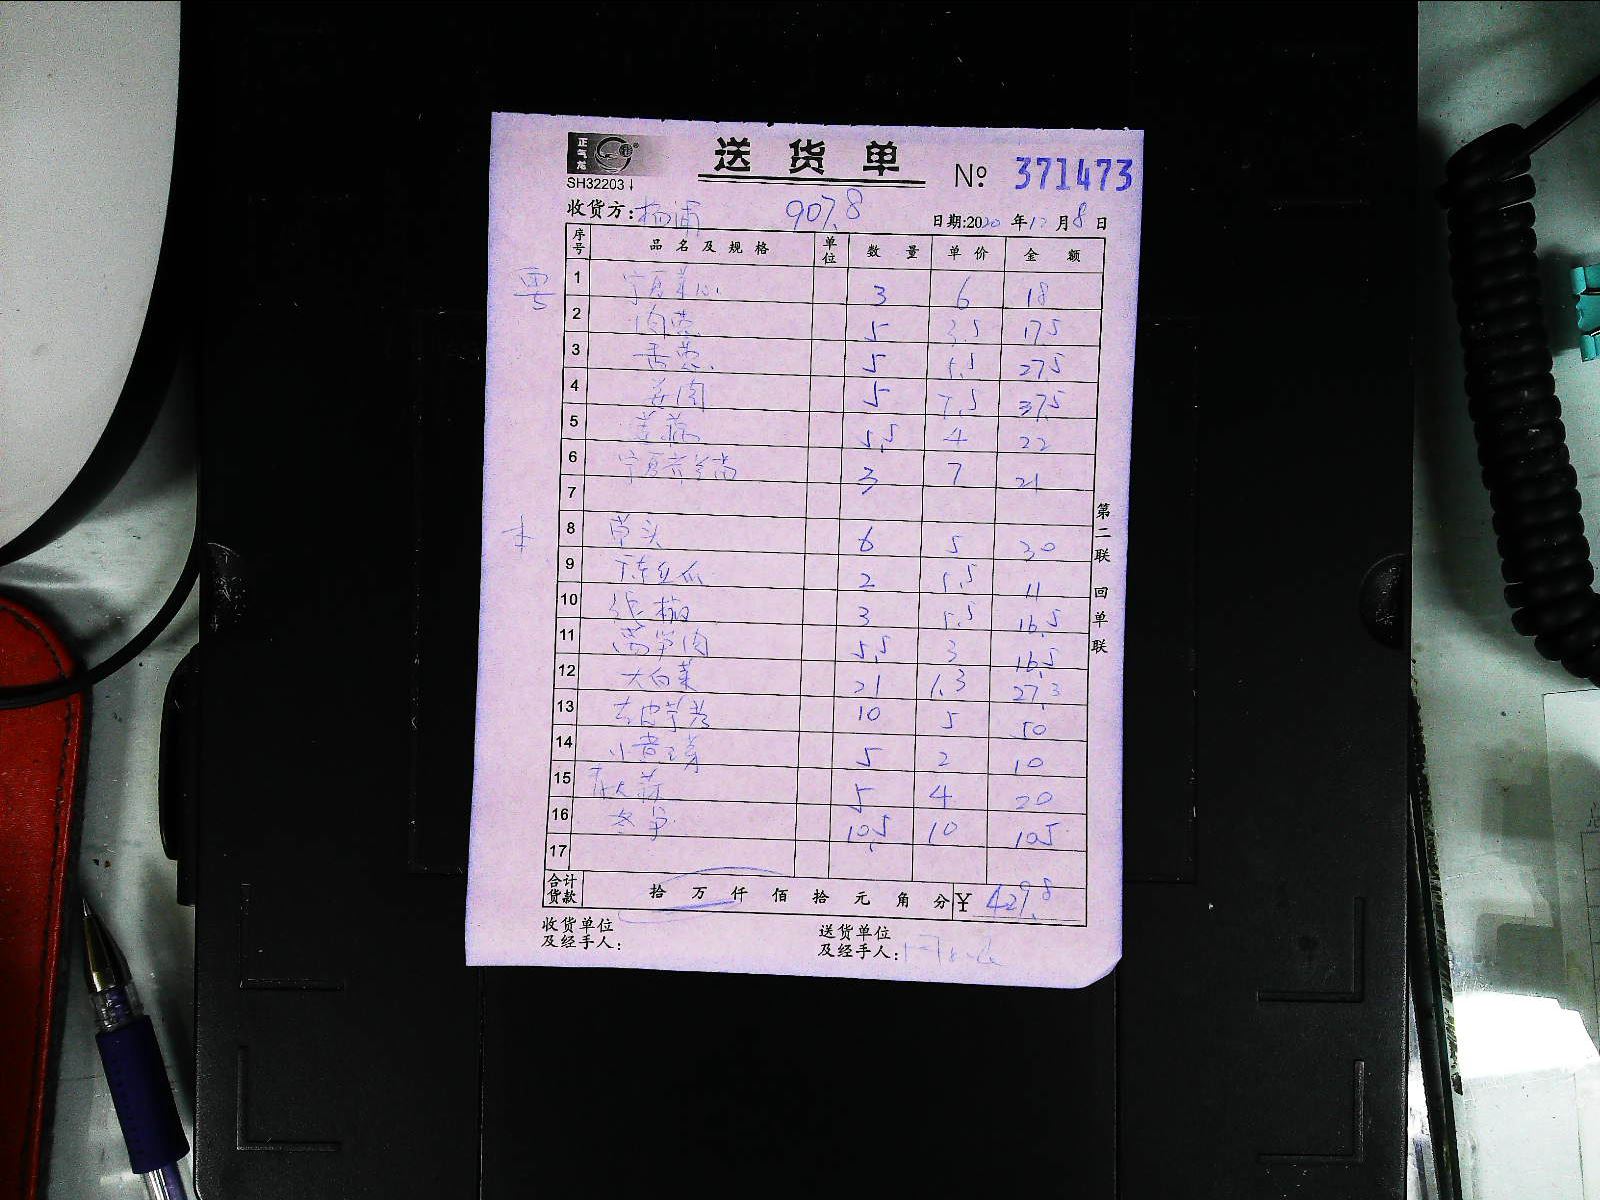 正气龙
送货单
№ 371473
SH32203↓
收货方: 杨浦 907.8 日期:2020年12月8日
序号 品名及规格 单位 数量 单价 金额
1 宁夏菜心 3 6 18
2 肉葱 5 3.5 17.5
3 香葱 5 5.5 27.5
4 姜肉 5 7.5 37.5
5 5.5 4 22
6 3 7 21
7
8 草头 6 5 30
9 2 5.5 11
10 3 5.5 16.5
11 莴笋肉 5.5 3 16.5
12 大白菜 21 1.3 27.3
13 去皮芋艿 10 5 50
14 小黄豆芽 5 2 10
15 青大蒜 5 4 20
16 冬笋 10.5 10 105
17
合计货款 拾 万 仟 佰 拾 元 角 分 ¥ 429.8
收货单位及经手人:
送货单位及经手人:
第二联 回单联